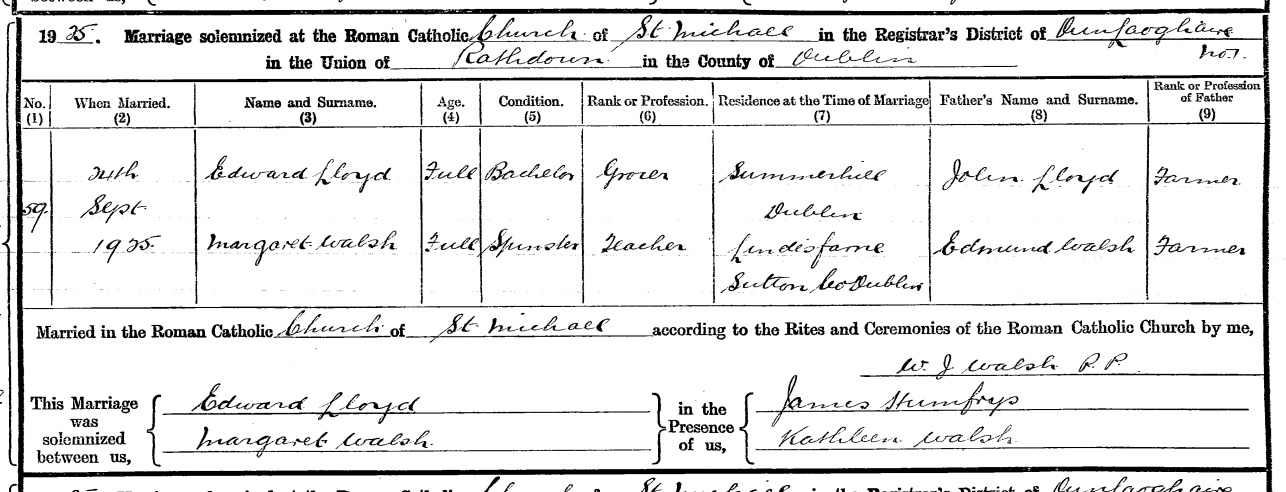 between us,
1925. Marriage solemnized at the Roman Catholic Church of St Michael in the Registrar's District of Dunlaoghaire
in the Union of Rathdown in the County of Dublin No 1.
No. When Married. Name and Surname. Age. Condition. Rank or Profession. Residence at the Time of Marriage Father's Name and Surname. Rank or Profession of Father
(1) (2) (3) (4) (5) (6) (7) (8) (9)
24th Edward Lloyd Full Bachelor Grocer Summerhill John Lloyd Farmer
59. Sept Dublin
1925. Margaret Walsh Full Spinster Teacher Lindesfarne Edmund Walsh Farmer
Sutton Co Dublin
Married in the Roman Catholic Church of St Michael according to the Rites and Ceremonies of the Roman Catholic Church by me,
W. J Walsh P.P.
This Marriage was solemnized between us, Edward Lloyd in the Presence of us, James Humfrys
Margaret Walsh. Kathleen Walsh
Church of St Michael in the Registrar's District of Dunlaoghaire